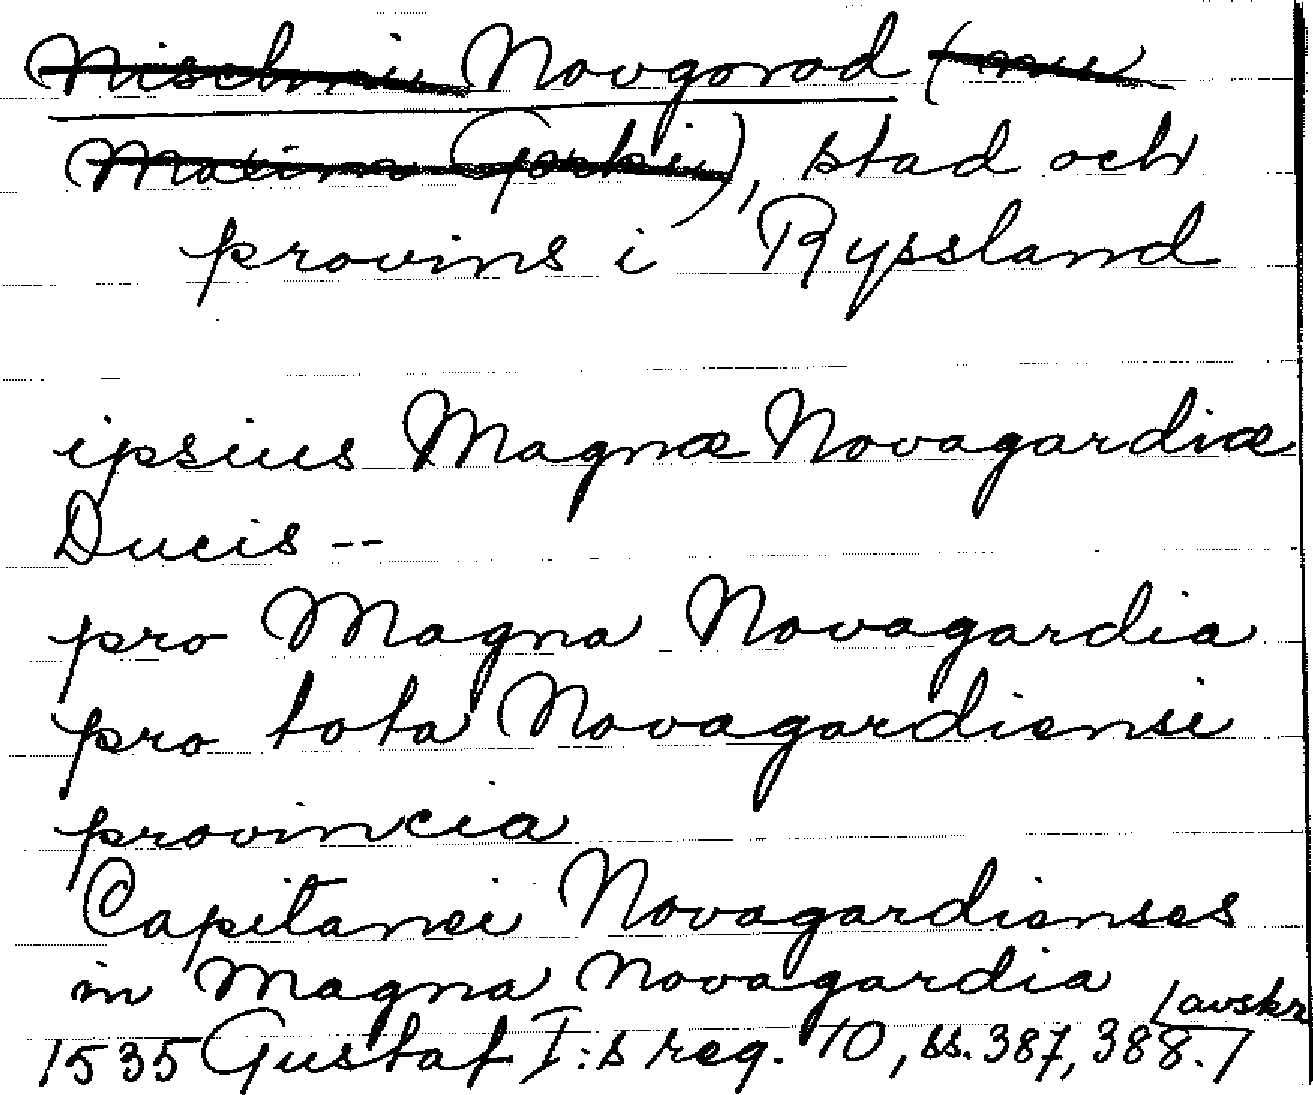 Nischnii Novgorod (nu
Maxim Gorki), stad och
provins i Ryssland
ipsius Magnæ Novagardiæ
Ducis --
pro Magna Novagardia
pro tota Novagardiensi
provincia
Capitanei Novagardienses
in Magna Novagardia
/avskr
1535 Gustaf I:s reg. 10, ss. 387, 388./